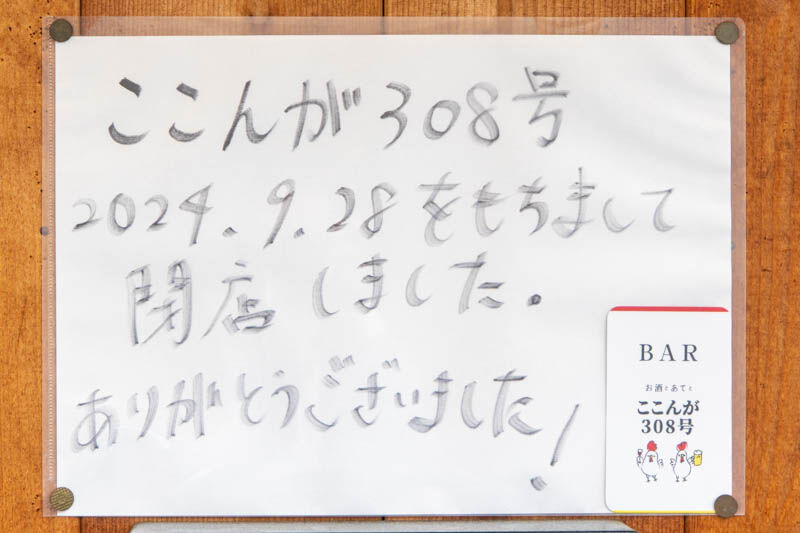 ここんが308号
2024.9.28をもちまして
閉店しました。
ありがとうございました!
BAR
お酒とあてと
ここんが
308号